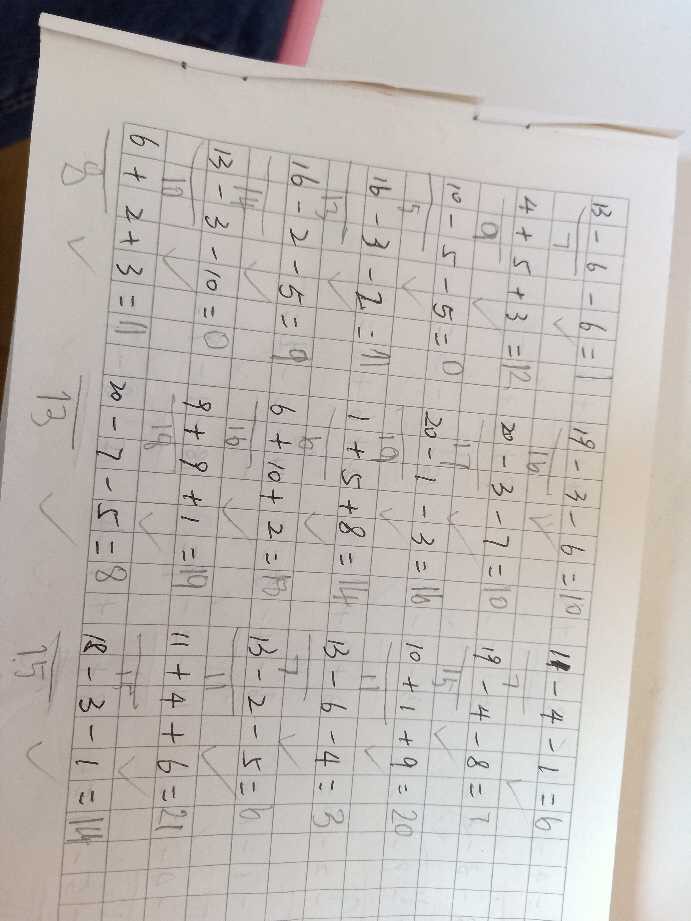 13 - 6 - 6 = 1 19 - 3 - 6 = 10 11 - 4 - 1 = 6
7 16 7
4 + 5 + 3 = 12 20 - 3 - 7 = 10 19 - 4 - 8 = 7
9 17 15
10 - 5 - 5 = 0 20 - 1 - 3 = 16 10 + 1 + 9 = 20
5 19 11
16 - 3 - 2 = 11 1 + 5 + 8 = 14 13 - 6 - 4 = 3
13 6 7
16 - 2 - 5 = 9 6 + 10 + 2 = 18 13 - 2 - 5 = 6
14 16 11
13 - 3 - 10 = 0 9 + 9 + 1 = 19 11 + 4 + 6 = 21
10 18 15
6 + 2 + 3 = 11 20 - 7 - 5 = 8 18 - 3 - 1 = 14
8 13 15